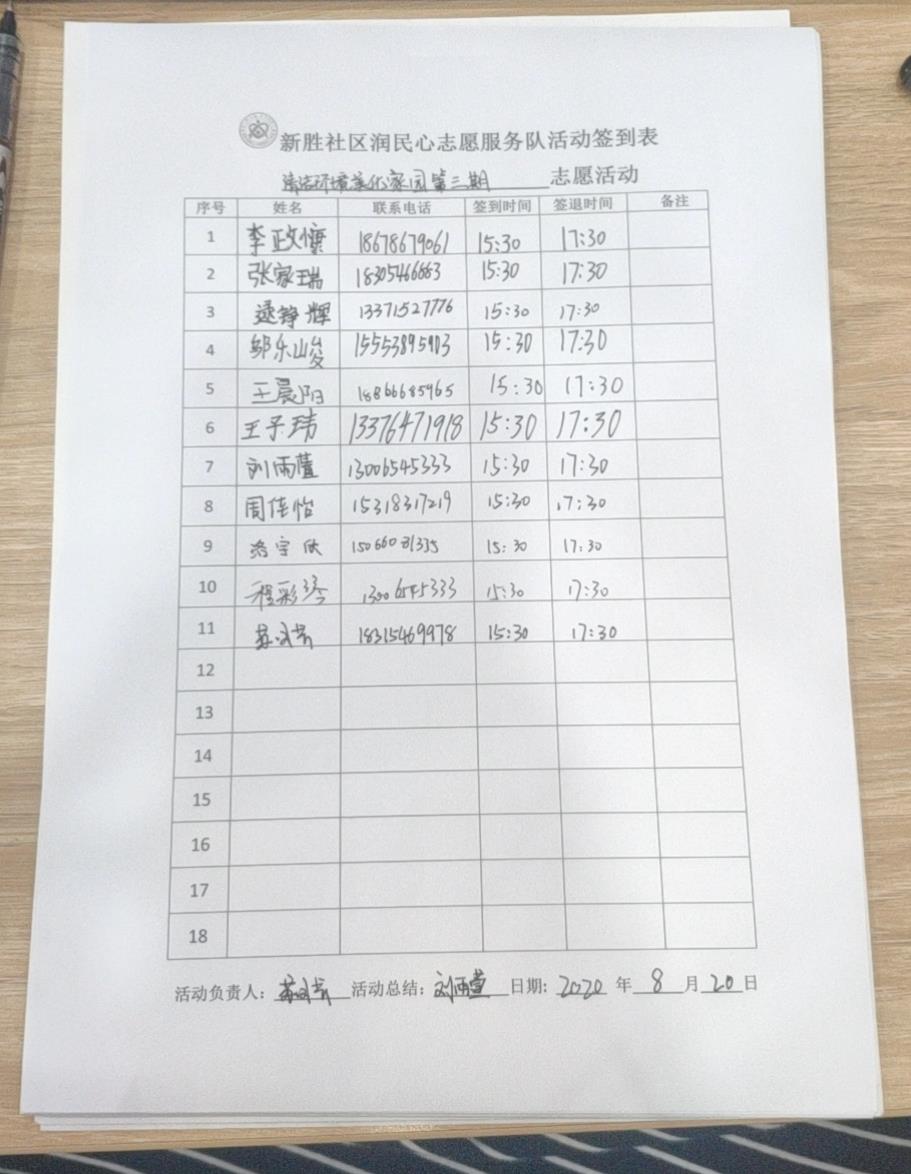 新胜社区润民心志愿服务队活动签到表
清洁环境美化家园第三期 志愿活动
序号 姓名 联系电话 签到时间 签退时间 备注
1 李政慷 18678679061 15:30 17:30
2 张家瑞 18305466663 15:30 17:30
3 逯铮辉 13371527776 15:30 17:30
4 邹乐山俊 15553895903 15:30 17:30
5 王晨阳 18866685965 15:30 17:30
6 王子玮 13376471918 15:30 17:30
7 刘雨萱 13006545333 15:30 17:30
8 周佳怡 15318317219 15:30 17:30
9 宇欣 15066081335 15:30 17:30
10 程彩琴 13006545333 15:30 17:30
11 18315469978 15:30 17:30
12
13
14
15
16
17
18
活动负责人: 活动总结: 刘雨萱 日期: 2020 年 8 月 20 日